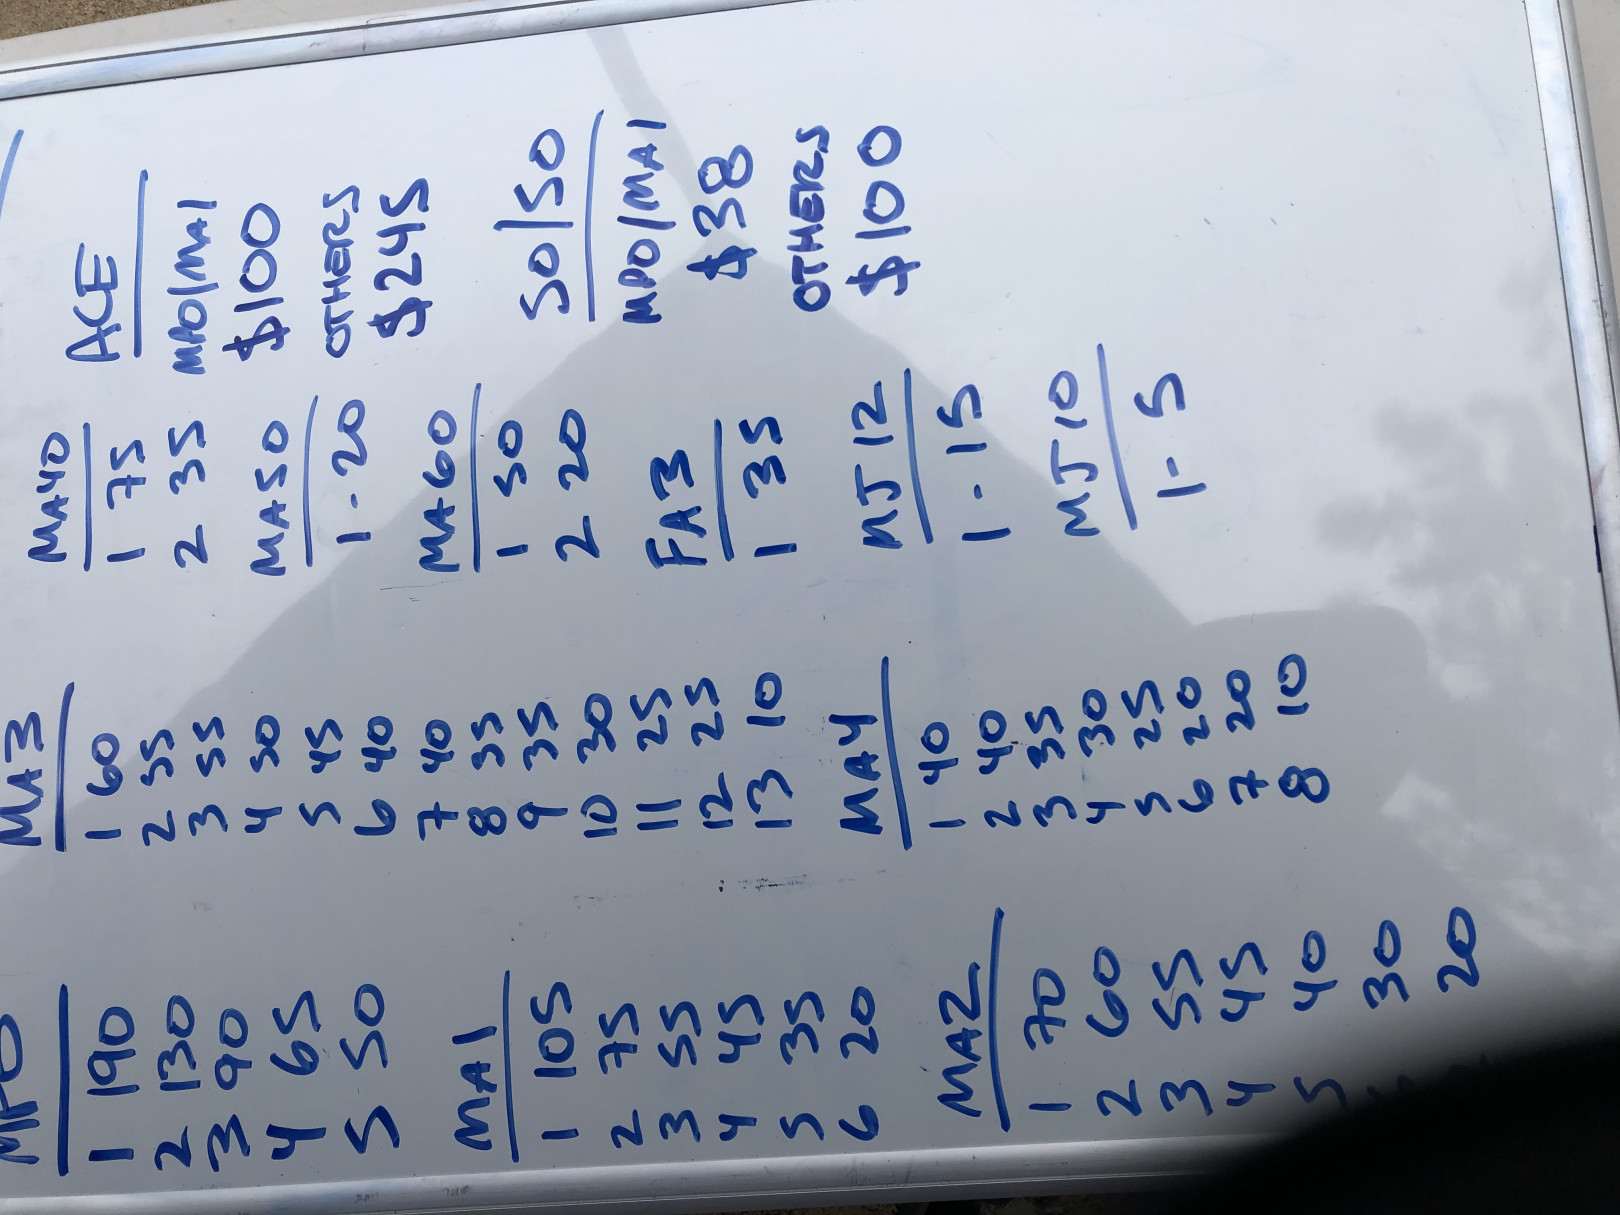 MPO
1 190
2 130
3 90
4 65
5 50
MA1
1 105
2 75
3 55
4 45
5 35
6 20
MA2
1 70
2 60
3 55
4 45
5 40
30
20
MA3
1 60
2 55
3 55
4 50
5 45
6 40
7 40
8 35
9 35
10 30
11 25
12 25
13 10
MA4
1 40
2 40
3 35
4 30
5 25
6 20
7 20
8 10
MA40
1 75
2 35
MA50
1-20
MA60
1 50
2 20
FA3
1 35
MJ12
1-15
MJ10
1-5
ACE
MPO/MA1
$100
OTHERS
$245
50/50
MPO/MA1
$38
OTHERS
$100